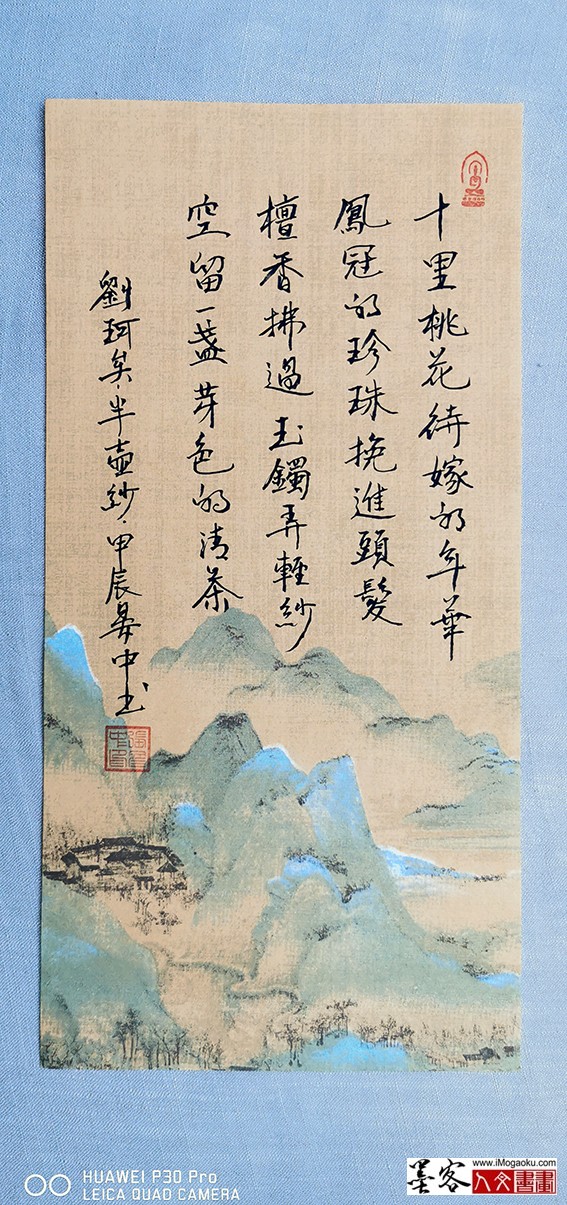 十里桃花待嫁的年華
鳳冠的珍珠挽進頭髮
檀香拂過玉鐲弄輕紗
空留一盞芽色的清茶
劉珂矣·半壺紗·甲辰晏中书
HUAWEI P30 Pro
LEICA QUAD CAMERA
墨客
www.iMogaoku.com
人文書畫